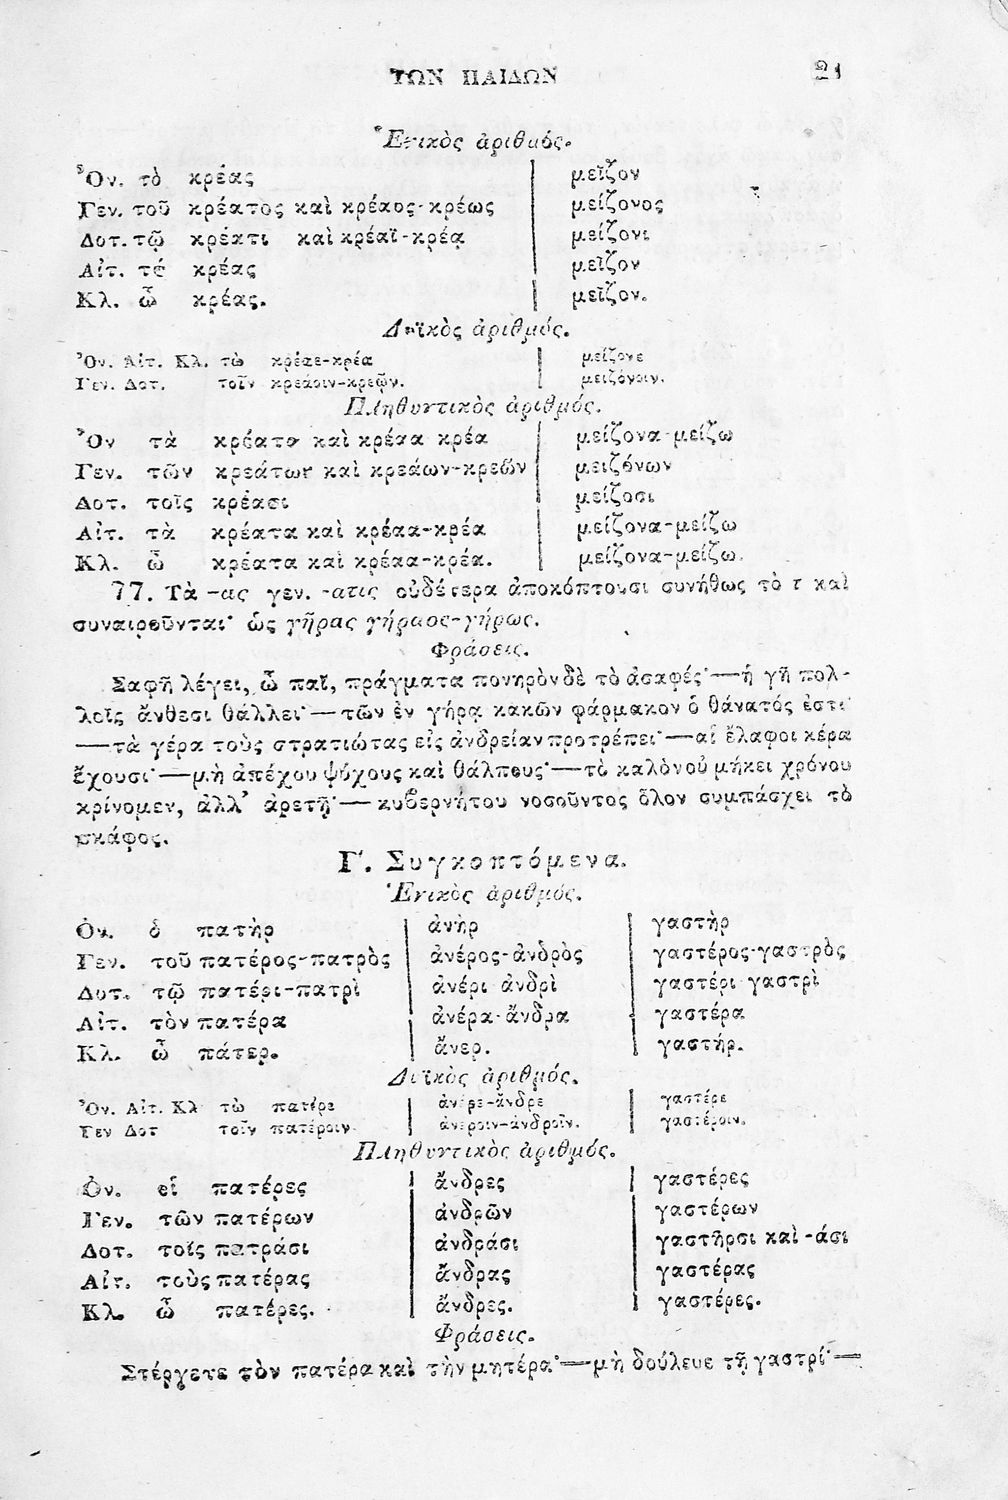 ΤΩΝ ΠΑΙΔΩΝ 21
Ἑνικὸς ἀριθμός.
Ὀν. τὸ κρέας μεῖζον
Γεν. τοῦ κρέατος καὶ κρέαος-κρέως μείζονος
Δοτ. τῷ κρέατι καὶ κρέαϊ-κρέᾳ μείζονι
Αἰτ. τὸ κρέας μεῖζον
Κλ. ὦ κρέας. μεῖζον.
Δυϊκὸς ἀριθμός.
Ὀν. Αἰτ. Κλ. τὼ κρέαε-κρέα μείζονε
Γεν. Δοτ. τοῖν κρεάοιν-κρεῷν. μειζόνοιν.
Πληθυντικὸς ἀριθμός.
Ὀν τὰ κρέατα καὶ κρέαα κρέα μείζονα-μείζω
Γεν. τῶν κρεάτων καὶ κρεάων-κρεῶν μειζόνων
Δοτ. τοῖς κρέασι μείζοσι
Αἰτ. τὰ κρέατα καὶ κρέαα-κρέα μείζονα-μείζω
Κλ. ὦ κρέατα καὶ κρέαα-κρέα. μείζονα-μείζω.
77. Τὰ -ας γεν. -ατις οὐδέτερα ἀποκόπτουσι συνήθως τὸ τ καὶ
συναιροῦνται· ὡς γῆρας γήραος-γήρως.
Φράσεις.
Σαφῆ λέγει, ὦ παῖ, πράγματα πονηρὸν δὲ τὸ ἀσαφές·—ἡ γῆ πολ-
λοῖς ἄνθεσι θάλλει·—τῶν ἐν γήρᾳ κακῶν φάρμακον ὁ θάνατός ἐστι·
—τὰ γέρα τοὺς στρατιώτας εἰς ἀνδρείαν προτρέπει·—αἱ ἔλαφοι κέρα
ἔχουσι·—μὴ ἀπέχου ψύχους καὶ θάλπους·—τὸ καλὸν οὐ μήκει χρόνου
κρίνομεν, ἀλλ' ἀρετῇ·—κυβερνήτου νοσοῦντος ὅλον συμπάσχει τὸ
σκάφος.
Γ'. Συγκοπτόμενα.
Ἑνικὸς ἀριθμός.
Ὀν. ὁ πατὴρ ἀνὴρ γαστὴρ
Γεν. τοῦ πατέρος-πατρὸς ἀνέρος-ἀνδρὸς γαστέρος-γαστρὸς
Δοτ. τῷ πατέρι-πατρὶ ἀνέρι ἀνδρὶ γαστέρι γαστρὶ
Αἰτ. τὸν πατέρα ἀνέρα-ἄνδρα γαστέρα
Κλ. ὦ πάτερ. ἄνερ. γαστήρ.
Δυϊκὸς ἀριθμός.
Ὀν. Αἰτ. Κλ τὼ πατέρε ἀνέρε-ἄνδρε γαστέρε
Γεν Δοτ τοῖν πατέροιν ἀνέροιν-ἀνδροῖν. γαστέροιν.
Πληθυντικὸς ἀριθμός.
Ὀν. οἱ πατέρες ἄνδρες γαστέρες
Γεν. τῶν πατέρων ἀνδρῶν γαστέρων
Δοτ. τοῖς πατράσι ἀνδράσι γαστῆρσι καὶ -άσι
Αἰτ. τοὺς πατέρας ἄνδρας γαστέρας
Κλ. ὦ πατέρες. ἄνδρες. γαστέρες.
Φράσεις.
Στέργετε τὸν πατέρα καὶ τὴν μητέρα·—μὴ δούλευε τῇ γαστρί·—